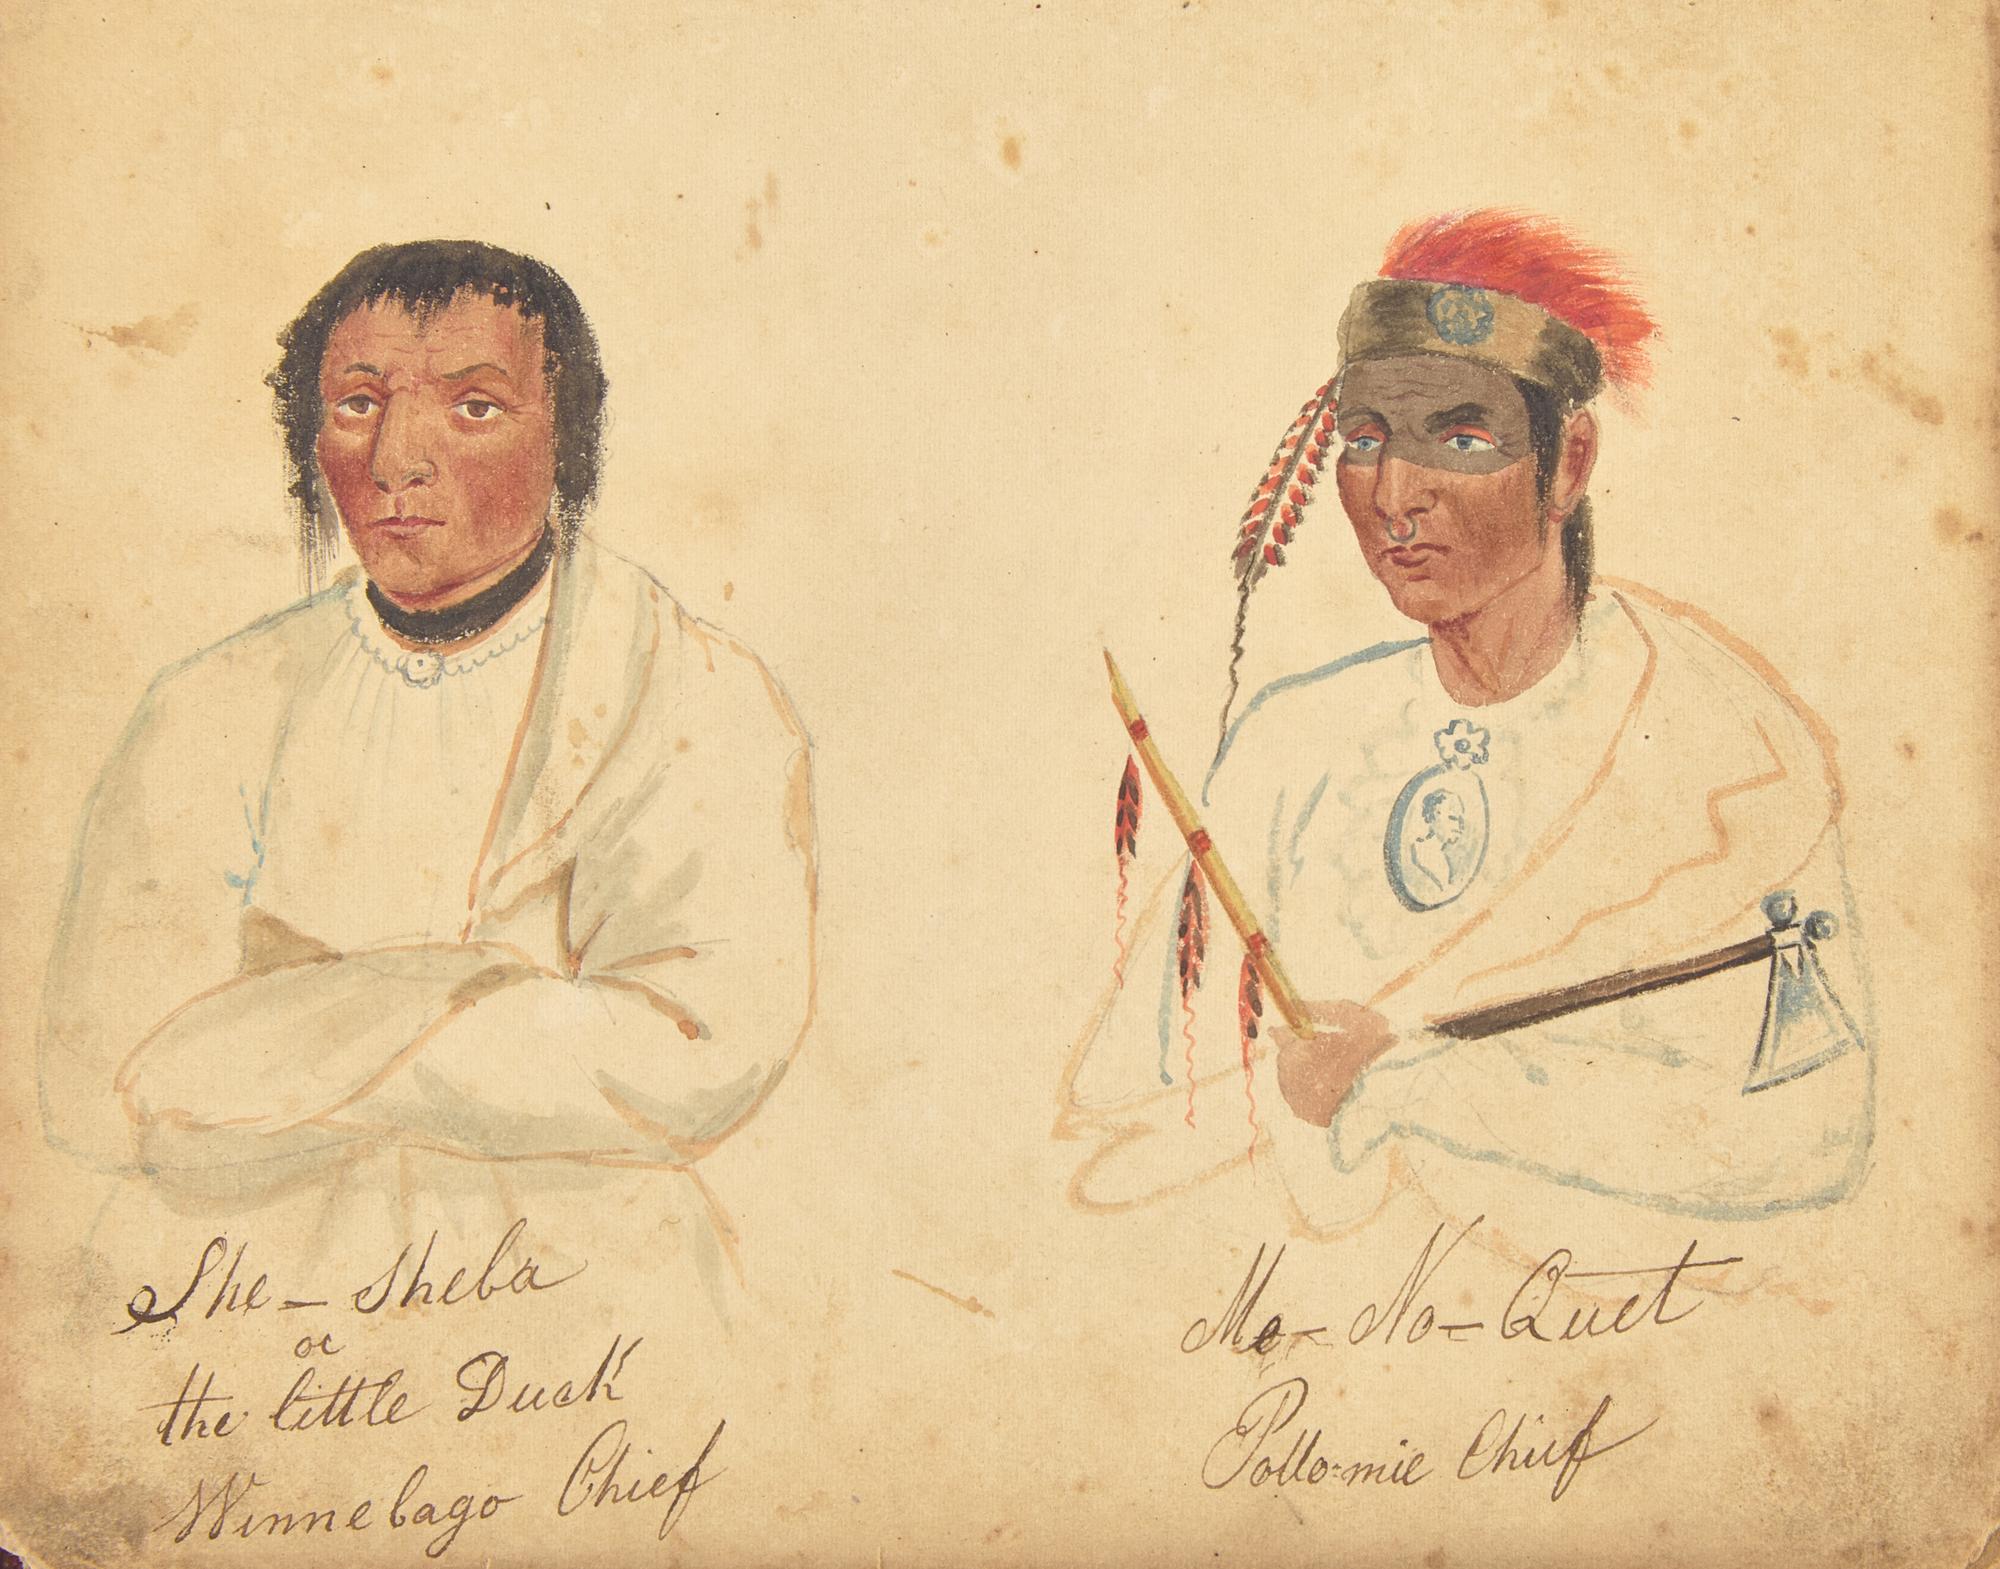 She - Sheba
or
the little Duck
Winnebago Chief
Mo - No - Quet
Potto-mie Chief